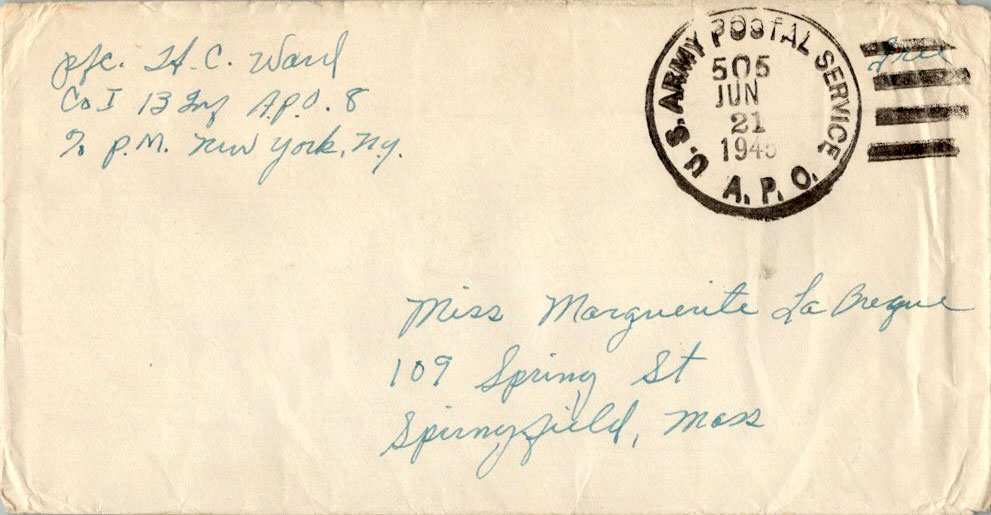 Pfc. H. C. Ward
Co I 13 Inf A.P.O. 8
% P.M. New York, N.y.
U. S. ARMY POSTAL SERVICE
505
JUN
21
1945
A. P. O.
Free
Miss Marguerite La Breque
109 Spring St
Springfield, Mass